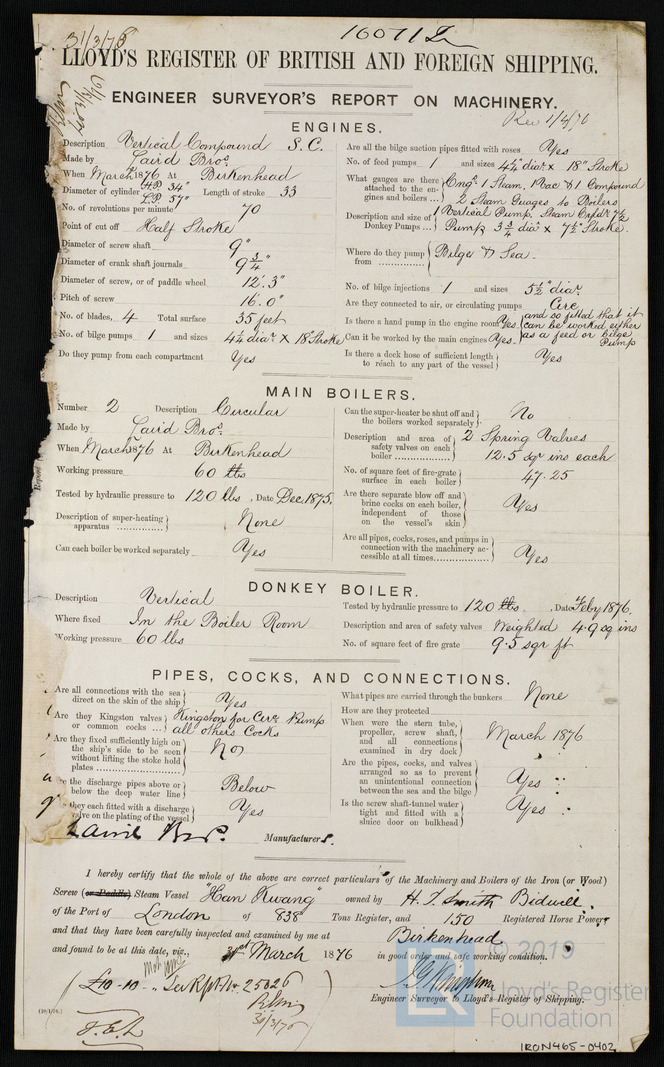 31/3/76
16071 Ir
LLOYD'S REGISTER OF BRITISH AND FOREIGN SHIPPING.
ENGINEER SURVEYOR'S REPORT ON MACHINERY.
Rec 1/4/76
ENGINES.
Description Vertical Compound S.C.
Made by Laird Bros.
When March 1876 At Birkenhead
Diameter of cylinder H.P. 34" L.P. 57" Length of stroke 33
No. of revolutions per minute 70
Point of cut off Half Stroke
Diameter of screw shaft 9"
Diameter of crank shaft journals 9 3/4"
Diameter of screw, or of paddle wheel 12'.3"
Pitch of screw 16'.0"
No. of blades, 4 Total surface 35 feet
No. of bilge pumps 1 and sizes 4¼ diar X 18" Stroke
Do they pump from each compartment Yes
Are all the bilge suction pipes fitted with roses Yes
No. of feed pumps 1 and sizes 4¼" diar x 18" Stroke
What gauges are there attached to the engines and boilers ... Engs 1 Steam, 1 Vac & 1 Compound
2 Steam Guages to Boilers
Description and size of Donkey Pumps ... 1 Vertical Pump, Steam Cylr 7½
Pump 3¾ diar X 7½" Stroke.
Where do they pump from Bilge & Sea
No. of bilge injections 1 and sizes 5½" diar
Are they connected to air, or circulating pumps Circ
Is there a hand pump in the engine room Yes
Can it be worked by the main engines Yes. and so fitted that it can be worked either as a feed or bilge Pump
Is there a deck hose of sufficient length to reach to any part of the vessel Yes
MAIN BOILERS.
Number 2 Description Circular
Made by Laird Bros.
When March 1876 At Birkenhead
Working pressure 60 lbs
Tested by hydraulic pressure to 120 lbs, Date Dec. 1875.
Description of super-heating apparatus None
Can each boiler be worked separately Yes
Can the super-heater be shut off and the boilers worked separately No
Description and area of safety valves on each boiler 2 Spring Valves
12.5 sqr ins each
No. of square feet of fire-grate surface in each boiler 47.25
Are there separate blow off and brine cocks on each boiler, independent of those on the vessel's skin Yes
Are all pipes, cocks, roses, and pumps in connection with the machinery accessible at all times Yes
DONKEY BOILER.
Description Vertical
Where fixed In the Boiler Room
Working pressure 60 lbs
Tested by hydraulic pressure to 120 lbs, Date Feby 1876.
Description and area of safety valves Weighted 4.9 sq ins
No. of square feet of fire grate 9.5 sqr ft
PIPES, COCKS, AND CONNECTIONS.
Are all connections with the sea direct on the skin of the ship Yes
Are they Kingston valves or common cocks ... Kingston for Circ Pump
all others Cocks
Are they fixed sufficiently high on the ship's side to be seen without lifting the stoke hold plates No
the discharge pipes above or below the deep water line Below
they each fitted with a discharge valve on the plating of the vessel Yes
What pipes are carried through the bunkers None
How are they protected
When were the stern tube, propeller, screw shaft, and all connections examined in dry dock March 1876
Are the pipes, cocks, and valves arranged so as to prevent an unintentional connection between the sea and the bilge Yes
Is the screw shaft-tunnel water tight and fitted with a sluice door on bulkhead Yes
Laird Bros. Manufacturers.
I hereby certify that the whole of the above are correct particulars of the Machinery and Boilers of the Iron (or Wood)
Screw (or Paddle) Steam Vessel "Han Kwang" owned by H. T. Smith Bidwell.
of the Port of London of 838 Tons Register, and 150 Registered Horse Power,
and that they have been carefully inspected and examined by me at Birkenhead
and found to be at this date, viz., 31st March 1876 in good order and safe working condition.
£10-10-
25026
30/3/76
Engineer Surveyor to Lloyd's Register of Shipping.
© 2019
LR Lloyd's Register
Foundation
IRON465-0402